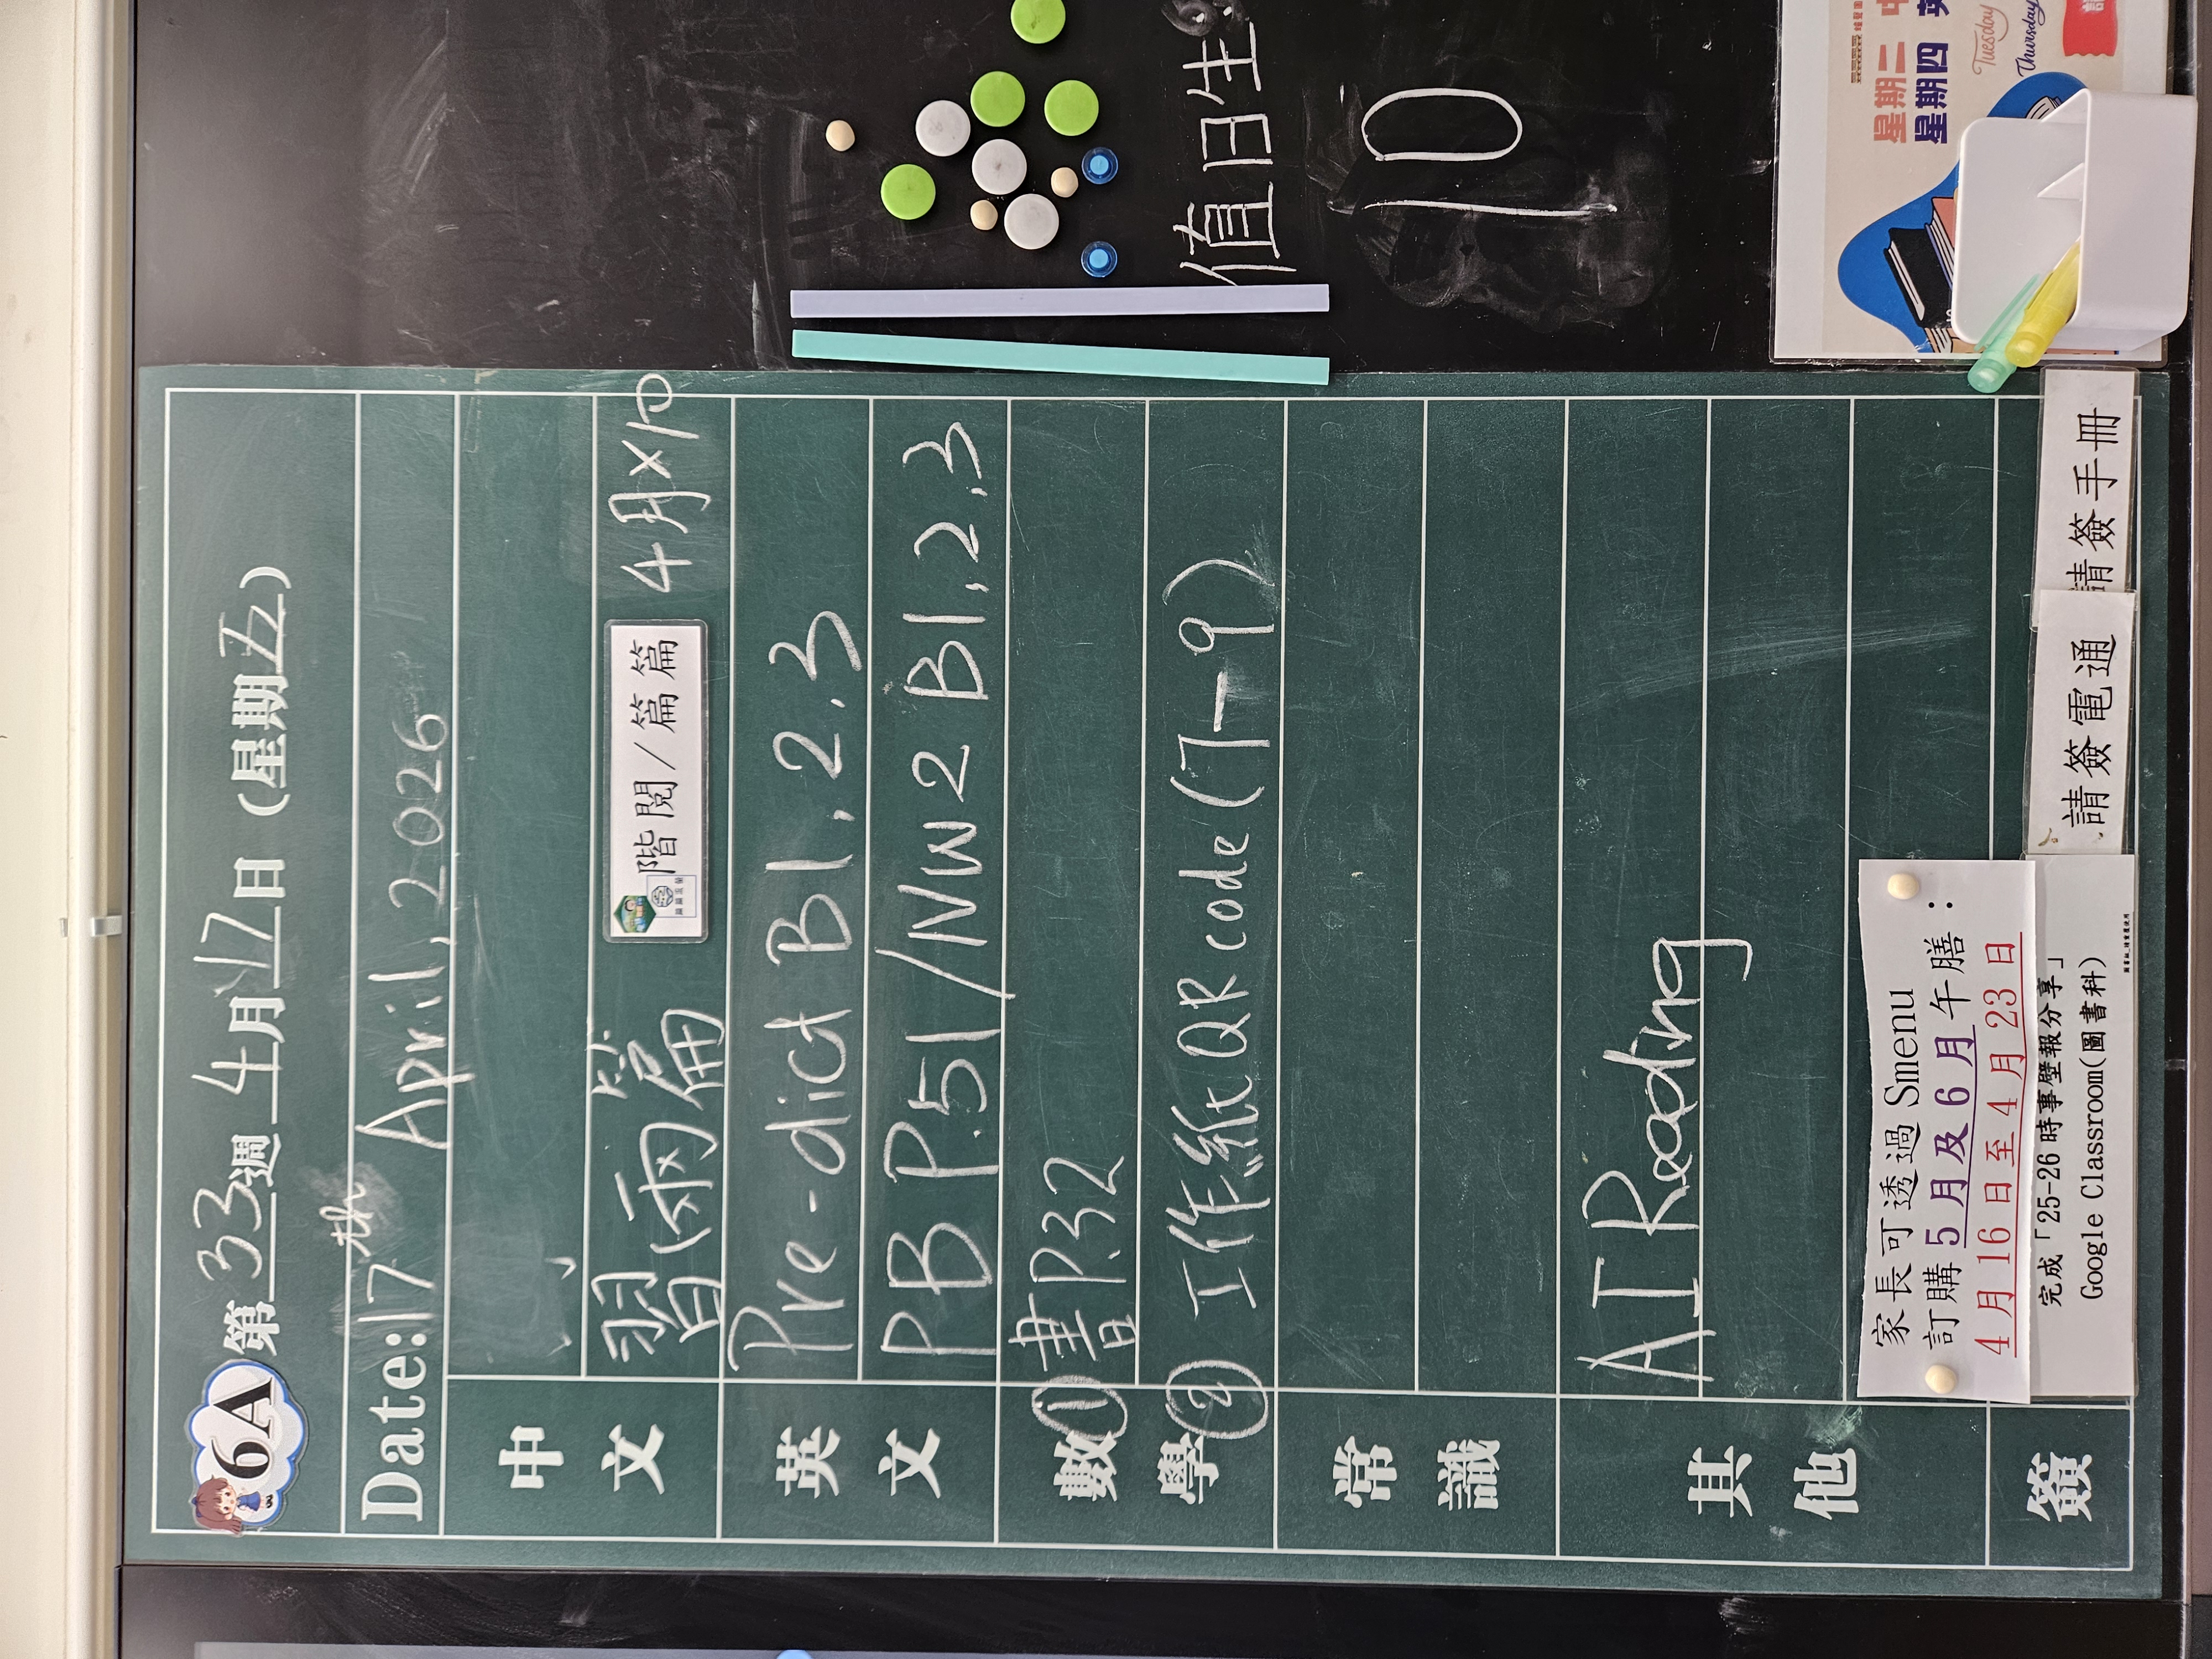 6A
第33週 4月17日(星期五)
Date: 17th April, 2026
中文
習兩篇
階閱/篇篇
4月x10
英文
Pre-dict B1,2.3
PB P.51/NW2 B1,2.3
數學
① 書P.32
② 工作紙QR code (7-9)
常識
其他
AI Reading
家長可透過 Smenu
訂購 5月及6月午膳:
4月16日至4月23日
完成「25-26時事壁報分享」
Google Classroom(圖書科)
簽
請簽電通
請簽手冊
值日生:
10
星期二
星期四
Tuesday
Thursday